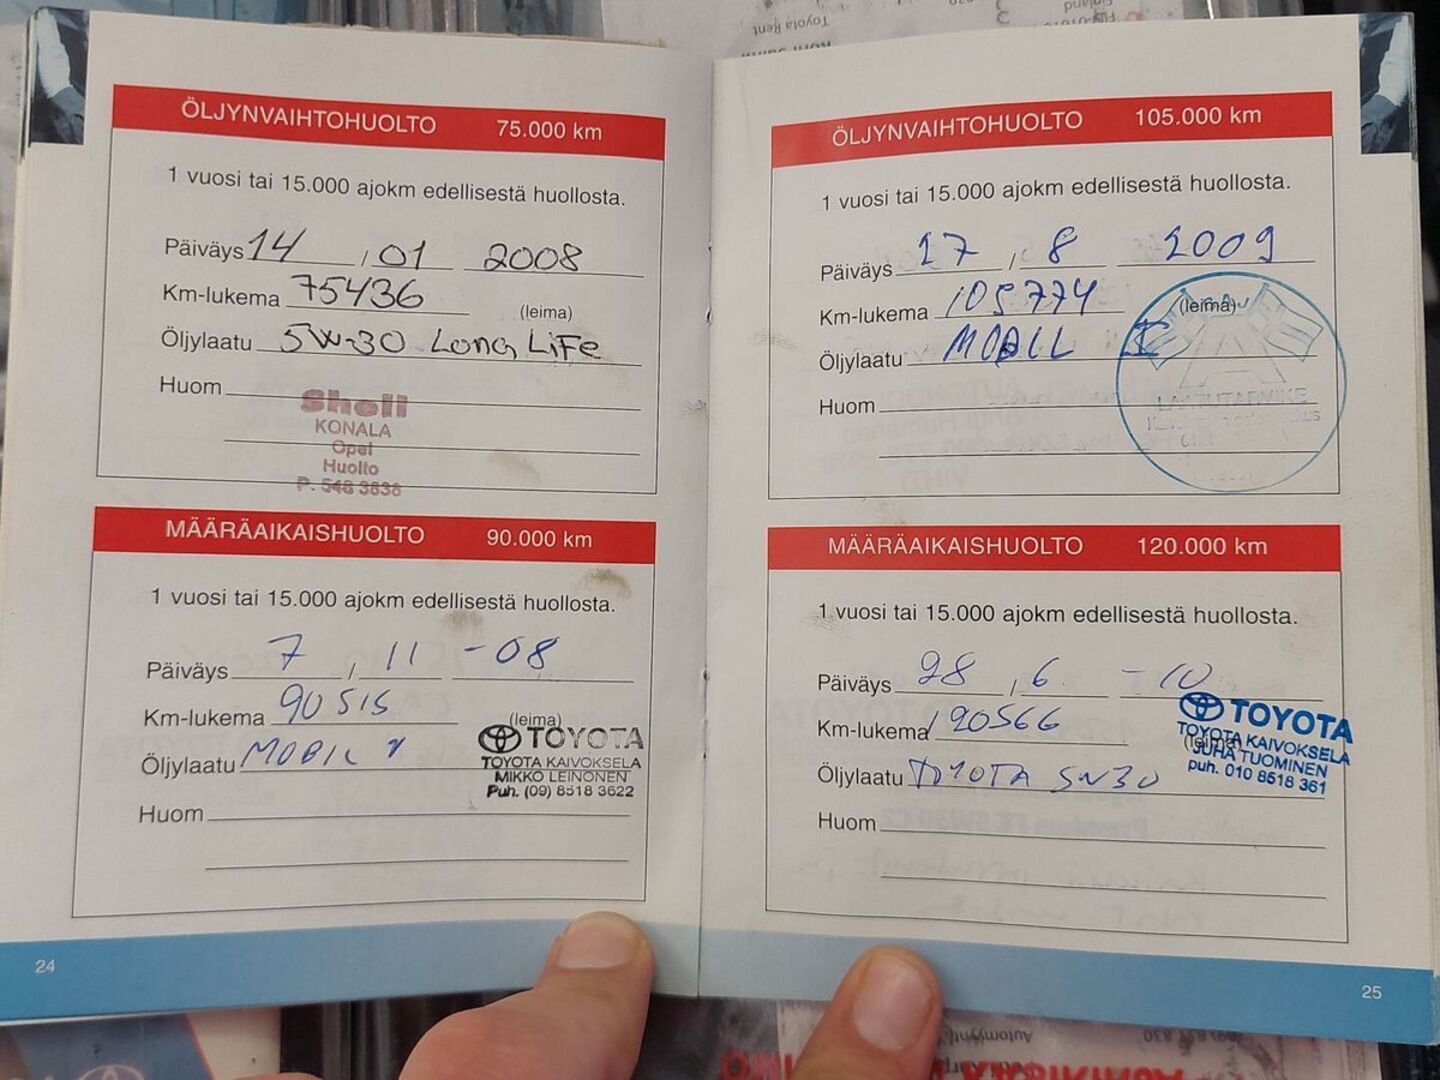 ÖLJYNVAIHTOHUOLTO 75.000 km
1 vuosi tai 15.000 ajokm edellisestä huollosta.
Päiväys 14 , 01 2008
Km-lukema 75436 (leima)
Öljylaatu 5W-30 Long LiFe
Huom
Shell
KONALA
Opel
Huolto
P. 548 3838
MÄÄRÄAIKAISHUOLTO 90.000 km
1 vuosi tai 15.000 ajokm edellisestä huollosta.
Päiväys 7 , 11 -08
Km-lukema 90515 (leima)
Öljylaatu MOBIL 1
Huom
TOYOTA
TOYOTA KAIVOKSELA
MIKKO LEINONEN
Puh. (09) 8518 3622
24
ÖLJYNVAIHTOHUOLTO 105.000 km
1 vuosi tai 15.000 ajokm edellisestä huollosta.
Päiväys 17 , 8 2009
Km-lukema 105774 (leima)
Öljylaatu MOBIL
Huom
LAATUTARVIKE
MÄÄRÄAIKAISHUOLTO 120.000 km
1 vuosi tai 15.000 ajokm edellisestä huollosta.
Päiväys 28 , 6 -10
Km-lukema 120566 (leima)
Öljylaatu TOYOTA 5W30
Huom
TOYOTA
TOYOTA KAIVOKSELA
JUHA TUOMINEN
puh. 010 8518 361
25
Toyota Rent